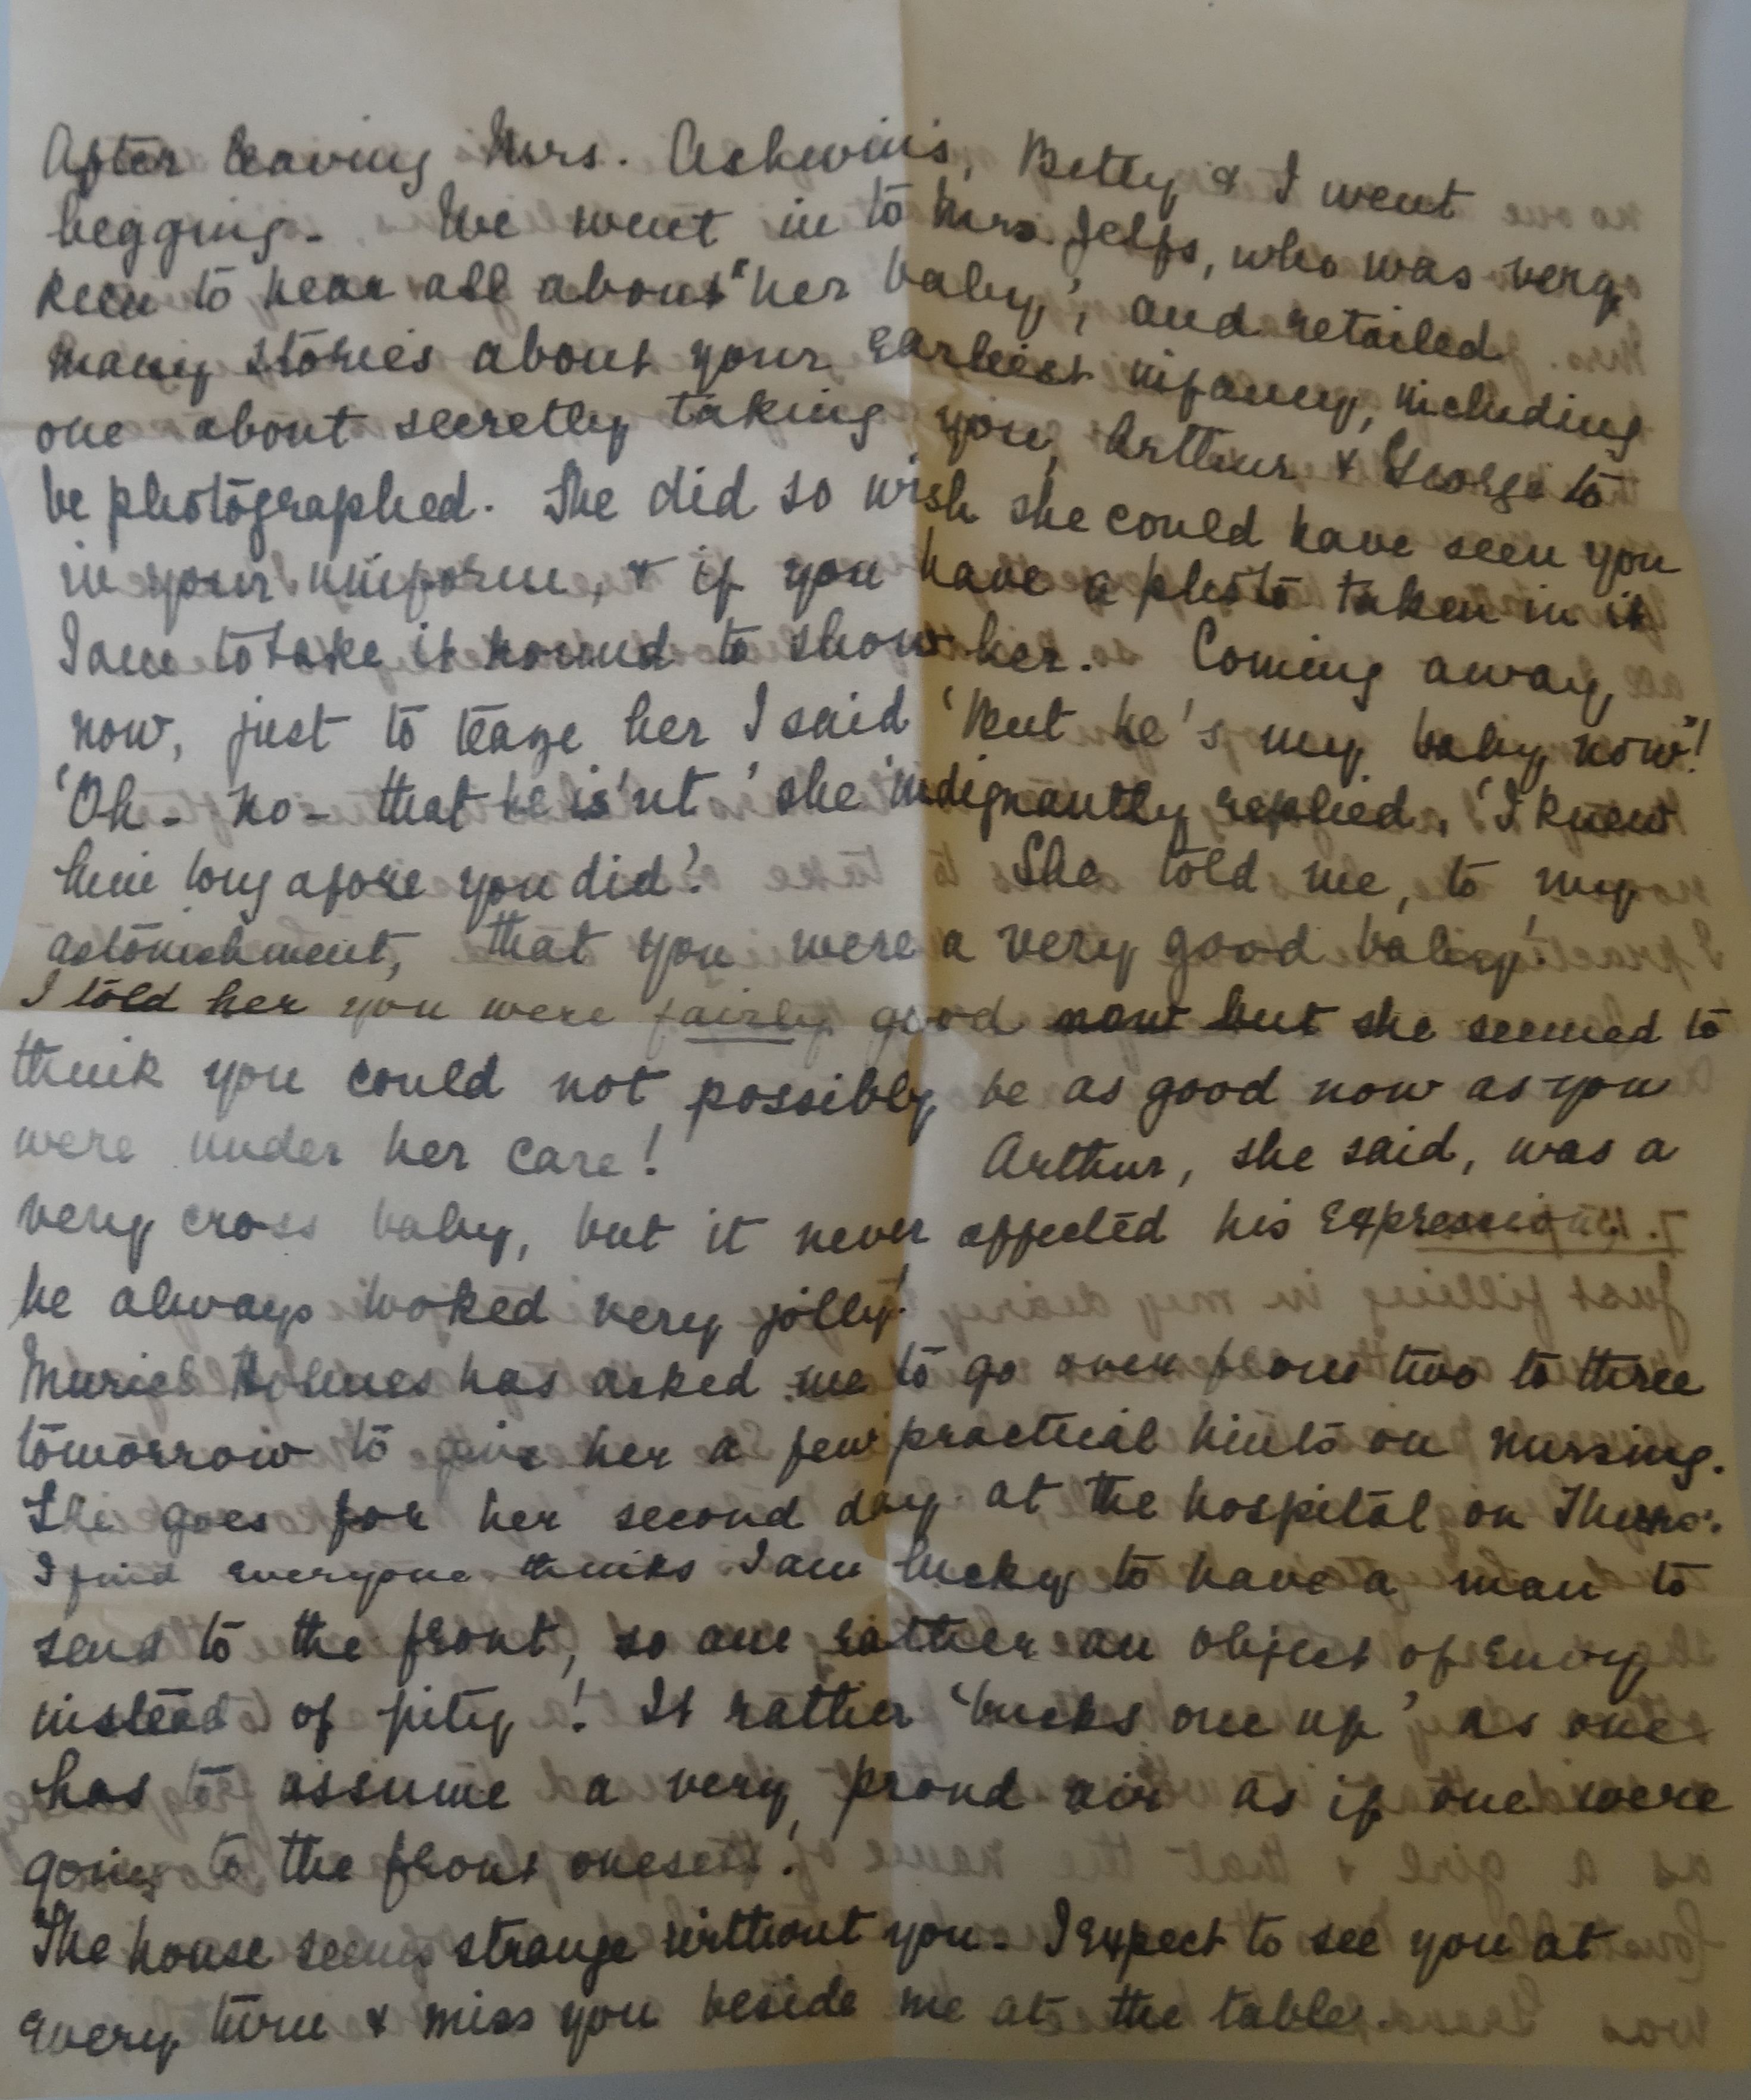 After leaving Mrs. Ashwin's, Betty & I went
begging. We went in to Mrs Jelfs, who was very
keen to hear all about "her baby', and retailed
many stories about your earliest infancy, including
one about secretly taking you, Arthur & George to
be photographed. She did so wish she could have seen you
in your uniform, & if you have a photo taken in it
I am to take it round to show her. Coming away,
now, just to teaze her I said 'But he's my baby now"!
'Oh - no - that he is'nt' she indignantly replied, 'I knew
him long afore you did'. She told me, to my
astonishment, that you were a very good baby!
I told her you were fairly good now but she seemed to
think you could not possibly be as good now as you
were under her care! Arthur, she said, was a
very cross baby, but it never affected his expression,
he always looked very jolly!
Muriel Holmes has asked me to go over from two to three
tomorrow to give her a few practical hints on nursing.
She goes for her second day at the hospital on Thurs.
I find everyone thinks I am lucky to have a man to
send to the front, so am rather an object of envy
instead of pity! It rather 'bucks one up' as one
has to assume a very proud air as if one were
going to the front oneself!
The house seems strange without you. I expect to see you at
every turn & miss you beside me at the table.